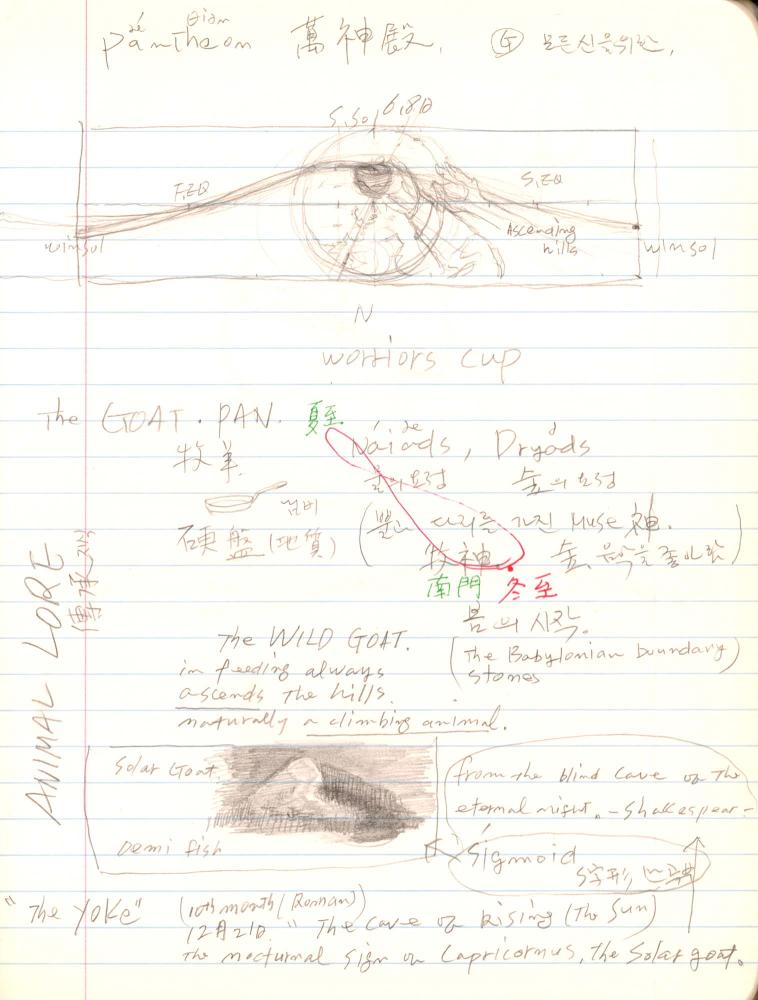 æ θiən
pántheon 萬神殿, G 모든신을위한,
S,Sol 6,8日
F,EQ S,EQ
winsol Ascending hills winsol
N
worriors cup
The GOAT. PAN. 夏至
Náiads, Dryads
牧羊 물의요정 숲의요정
냄비 (뿔과 다리를 가진 Muse 神.
硬盤(地質) 牧神 숲, 음악을 좋아함)
南門 冬至
봄의 시작.
ANIMAL LORE
傳承 지식
The WILD GOAT. (The Babylonian boundary)
in feeding always stones
ascends The hills.
naturally a climbing animal.
Solar Goat.
Demi fish
from the blind cave of The
eternal night. - Shakespear -
Sígmoid
S字形
"The YOKE" (10th month / Roman)
12月21日 " The cave of Rising (The Sun)
The nocturnal sign of Capricornus, the Solar goat.